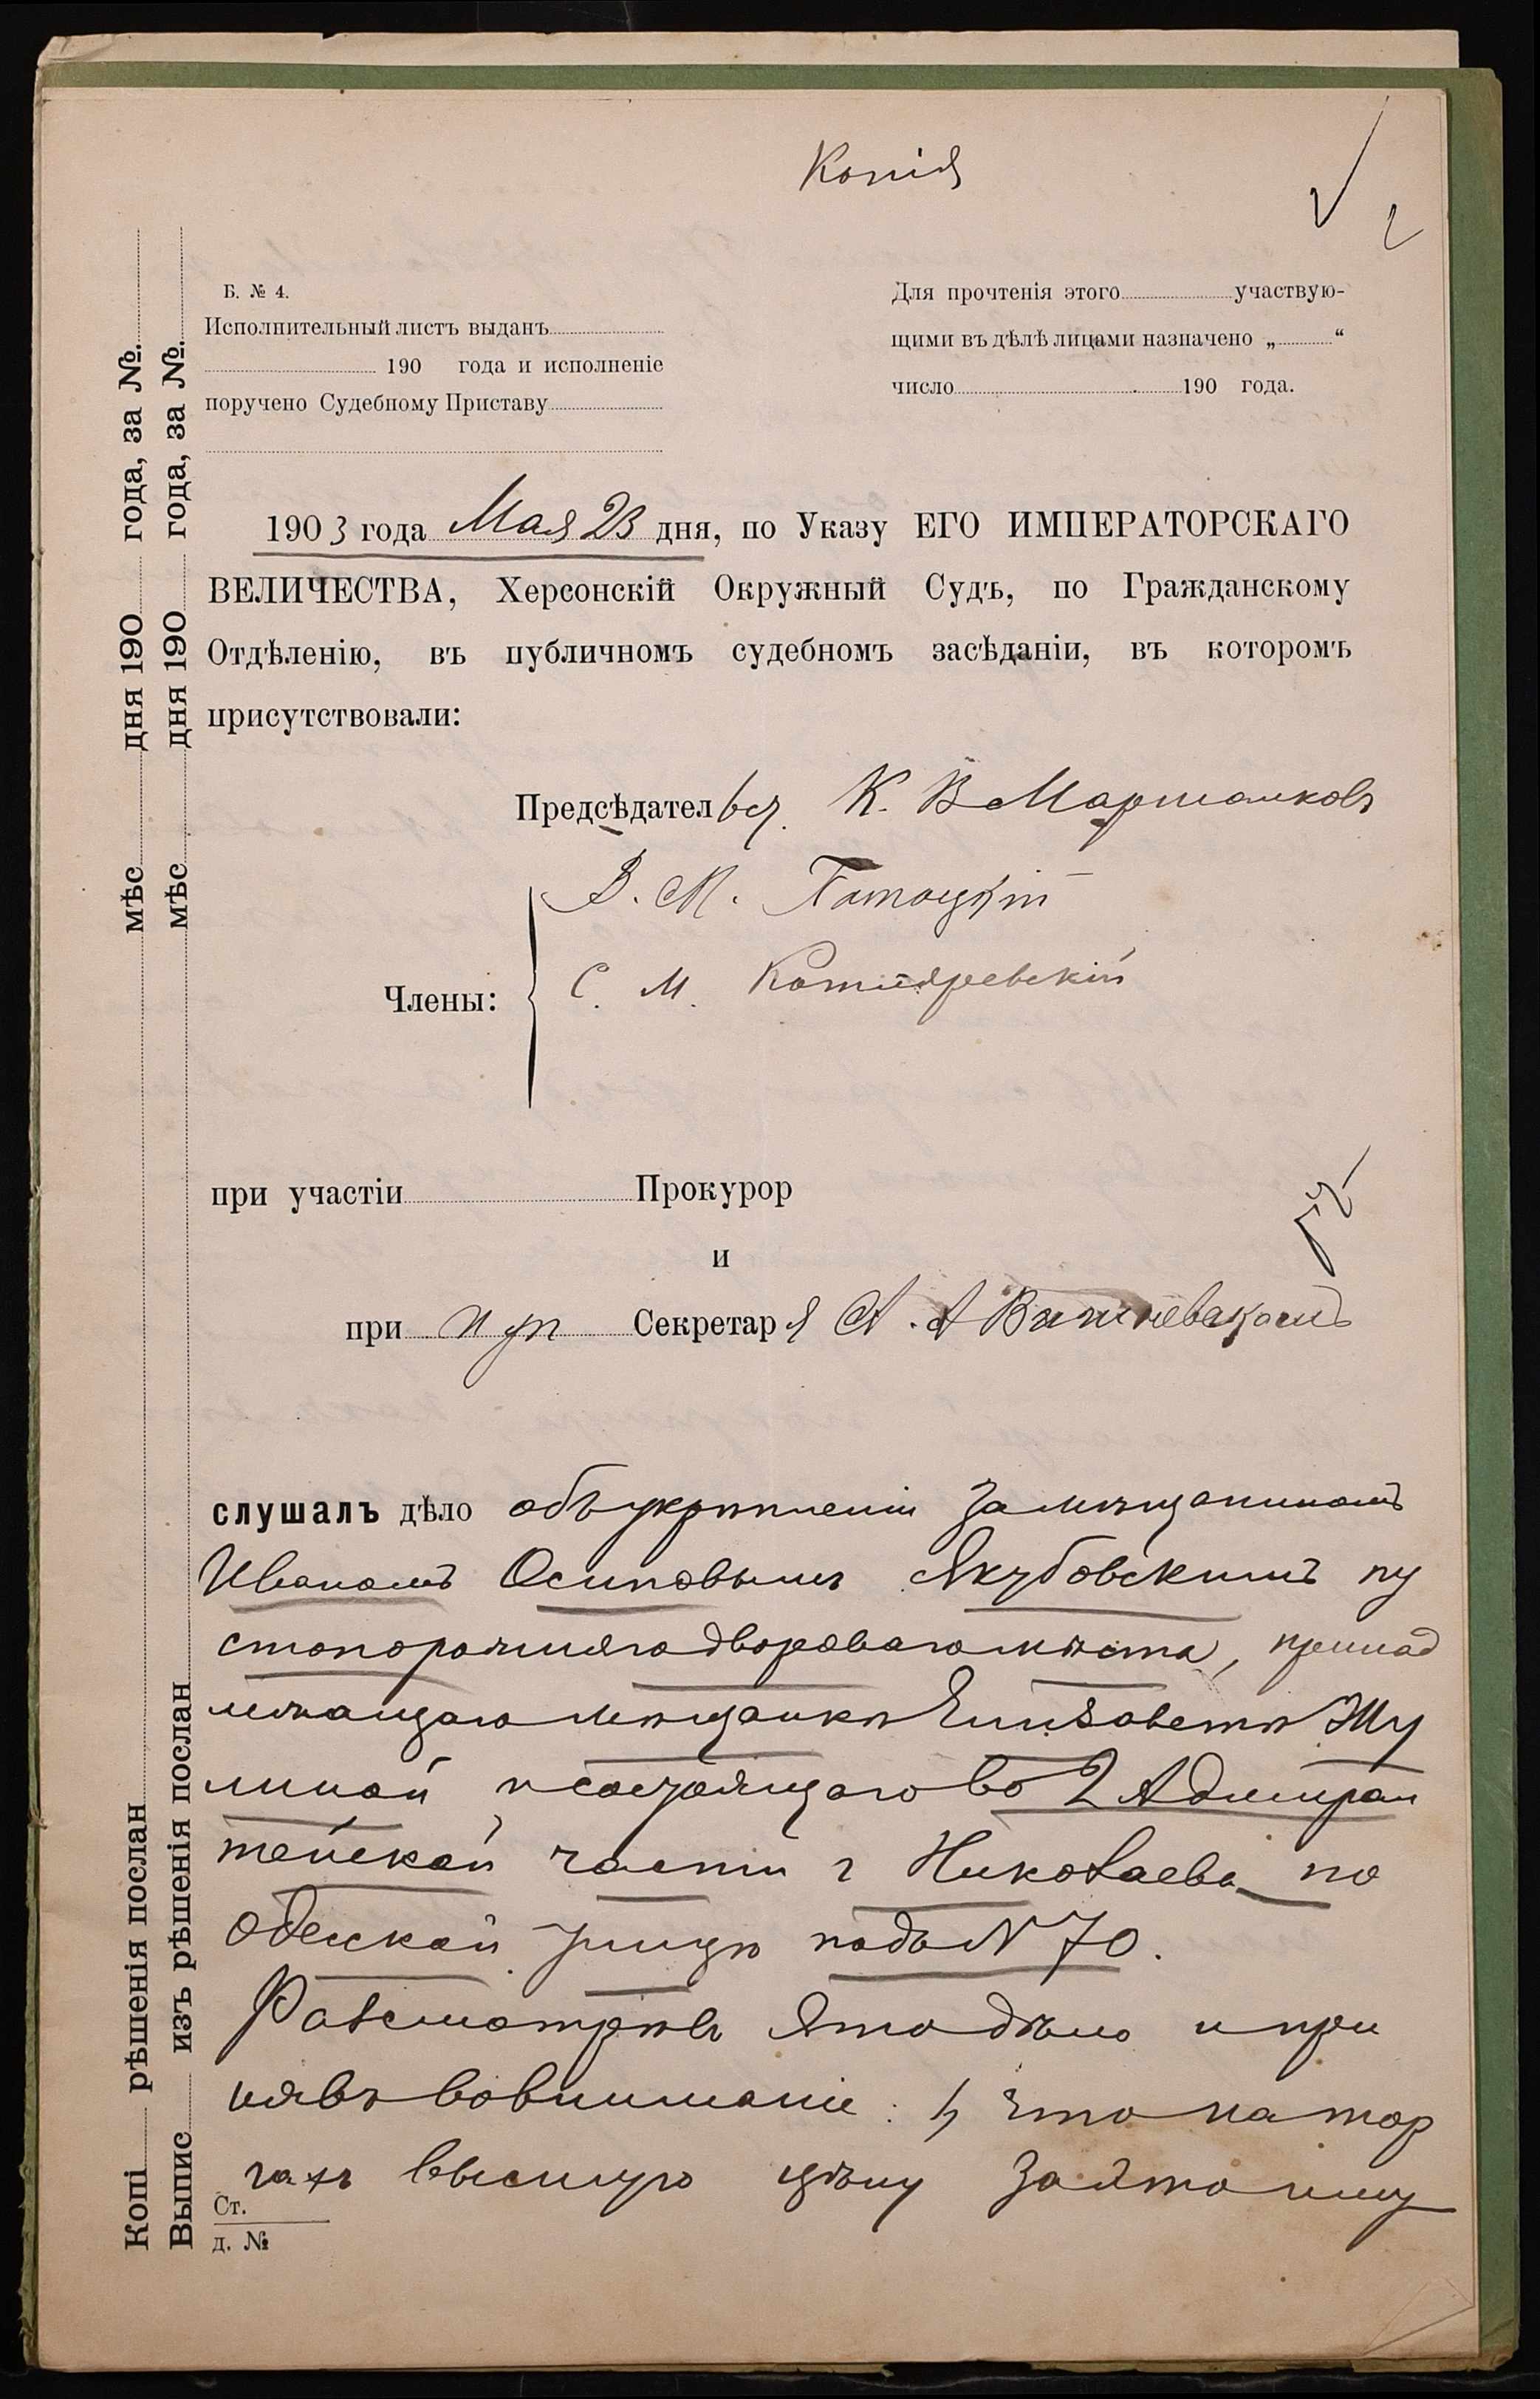 Копія
2
Б. № 4.
Исполнительный листъ выданъ
190 года и исполненіе
поручено Судебному Приставу
Для прочтенія этого участвую-
щими въ дѣлѣ лицами назначено „ “
число 190 года.
1903 года Мая 23 дня, по Указу ЕГО ИМПЕРАТОРСКАГО
ВЕЛИЧЕСТВА, Херсонскій Окружный Судъ, по Гражданскому
Отдѣленію, въ публичномъ судебномъ засѣданіи, въ которомъ
присутствовали:
Предсѣдател К. В
В. М.
Члены:
С. М. Котляревскій
при участіи Прокурор
и
при Секретаря А. А
слушалъ дѣло объ укрѣпленіи за мѣщаниномъ
Иваномъ Осиповымъ Якубовскимъ пу
стопорожняго двороваго мѣста, принад
лежащаго мѣщанкѣ Елизаветѣ Шу
линой и состоящаго во 2 Адмирал
тейской части г Николаева по
Одесской улицѣ подъ № 70.
Разсмотрѣвъ это дѣло и при
нявъ во вниманіе: 1) что на тор
гахъ высшую цѣну за это иму
Ст.
д. №
Копі рѣшенія послан мѣс дня 190 года, за №.
Выпис изъ рѣшенія послан мѣс дня 190 года, за №.